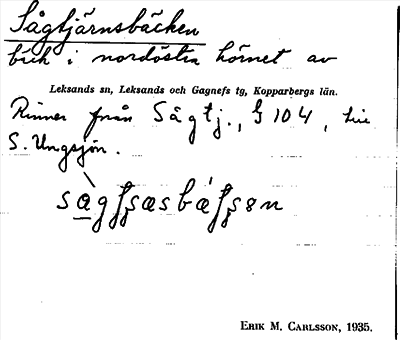 Sågtjärnsbäcken
bäck i nordöstra hörnet av
Leksands sn, Leksands och Gagnefs tg, Kopparbergs län.
Rinner från Sågtj., § 104, till
S. Ungsjön.
ERIK M. CARLSSON, 1935.